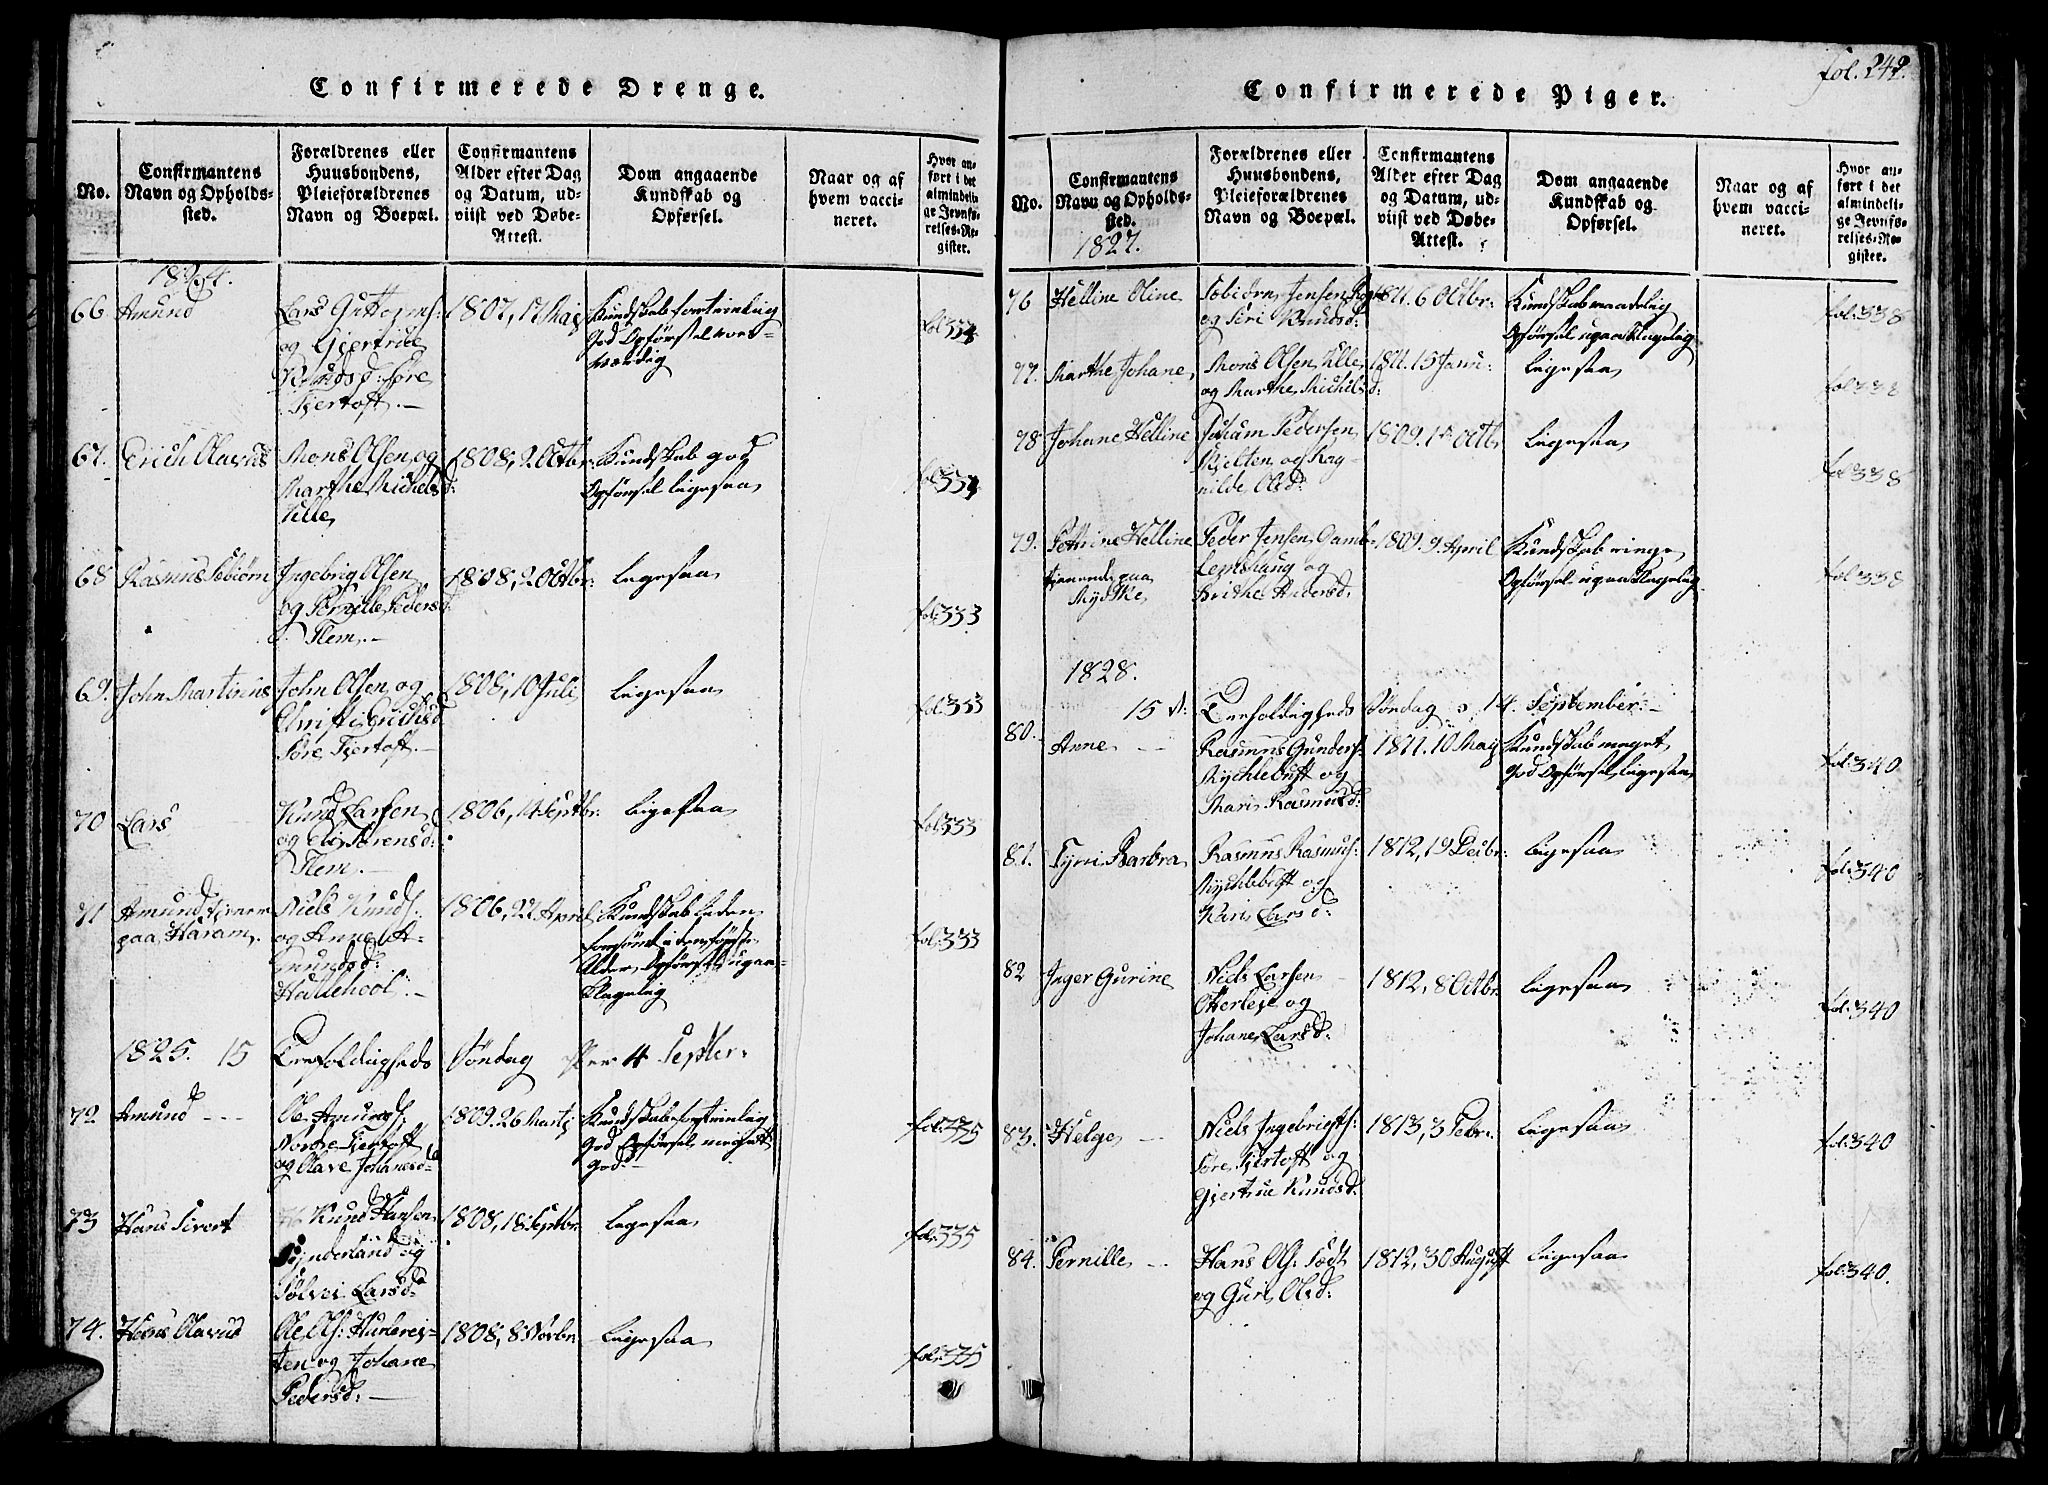 Confirmerede Drenge.
No.
Confirmantens
Navn og Opholds-
sted.
Forældrenes eller
Huusbondens,
Pleieforældrenes
Navn og Boepæl.
Confirmantens
Alder efter Dag
og Datum, ud-
viist ved Døbe-
Attest.
Dom angaaende
Kundskab og
Opførsel.
Naar og af
hvem vacci-
neret.
Hvor an-
ført i det
almindeli-
ge Jevnfø-
relses-Re-
gister.
1824.
66 Amund
Lars Guttorms:
og Giertrue
Knudsd: Søre
Fjertoft.
1807, 17 Maj
Kundskab fortrinlig
God Opførsel roes-
værdig
fol: 334
67. Erich Olavus
Mons Olsen og
Marthe Michelsd:
Ulle
1808, 2 Octbr:
Kundskab god
Opførsel ligesaa
fol: 334
68 Rasmus Tobiørn
Ingebrig Olsen
og Pernille Peders
d: Flem.
1808, 2 Octbr:
Ligesaa
fol: 333
69. John Martinus
John Olsen og
Søre Fjertoft.
1808, 10 Juli
Ligesaa
fol: 333
70 Lars
Knud Larsen
og Eli Sørensd:
Flem.
1806, 14 Septbr:
Ligesaa
fol: 333
71 Amund tjener
paa Haram.
Niels Knuds:
og Anne A-
mundsd:
1806, 22 April
Kundskab
Alder, Opførsel ugaa-
klagelig
fol: 333
1825. 15 Trefoldigheds Søndag 4 Septbr:
72 Amund
Ole Amunds:
Nordre Fjertoft
og Olave Johansd:
1809. 26 Martj
Kundskab fortrinlig
God Opførsel meget
God
fol: 335
73 Hans Sivert
Knud Hansen
Synderland og
Sølvei Larsd:
1808, 18 Septbr:
Ligesaa
fol: 335
74. Hans Olavus
Ole Ols: Hurlerei-
ten og Johane
Pedersd:
1808, 8 Novbr
Ligesaa
fol: 335
fol. 242.
Confirmerede Piger.
No.
Confirmantens
Navn og Opholds-
sted.
Forældrenes eller
Huusbondens,
Pleieforældrenes
Navn og Boepæl.
Confirmantens
Alder efter Dag
og Datum, ud-
viist ved Døbe-
Attest.
Dom angaaende
Kundskab og
Opførsel.
Naar og af
hvem vacci-
neret.
Hvor an-
ført i det
almindeli-
ge Jevnfø-
relses-Re-
gister.
1827.
76 Helline Oline
Tobiørn Jensen
og Siri Knudsd:
1811. 6 Octbr:
Kundskab maadelig
Opførsel upaaklagelig
fol: 338
77. Marthe Johane
Mons Olsen Ulle
og Marthe Michelsd:
1811. 15 Janu:
Ligesaa
fol: 338
78 Johane Helline
Joham Pedersen
Kjelten og Rag-
nilde Olsd:
1809. 1te Octb:
Ligesaa
fol: 338
79. Petrine Helline
tjenende paa
Mydske
Peder Jensen Gamb-
Lemshaug og
Brithe Andersd:
1809. 9 April
Kundskab ringe
Opførsel upaaklagelig
fol: 338
1828.
15 S: Trefoldigheds Søndag d: 14. September:
80. Anne
Rasmus Gunders:
Mychlebust og
Maris Rasmusd:
1811. 10 Maj
Kundskab meget
god Opførsel Ligesaa
fol: 340
81. Tyri Barbra
Rasmus Rasmus:
Mychlebust og
Kari Larsd:
1812, 19 Decbr:
Ligesaa
fol: 340
82 Inger Gurine
Niels Larsen
Otterlej og
Johane Larsd:
1812, 8 Octbr.
Ligesaa
fol: 340
83. Helge
Niels Ingebrigts:
Søre Fjertoft og
Gjertrue Knudsd.
1813, 3 Febr:
Ligesaa
fol: 340
84. Pernille
Hans Ols: Tødt
og Guri Olsd:
1812, 30 August
Ligesaa
fol: 340.